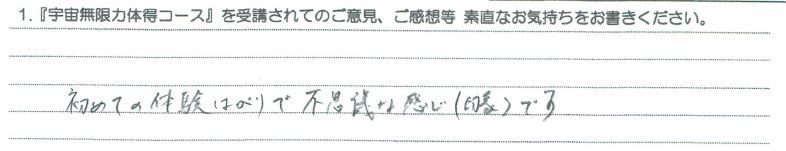 1.『宇宙無限力体得コース』を受講されてのご意見、ご感想等 素直なお気持ちをお書きください。
初めての体験ばかりで不思議な感じ(印象)です